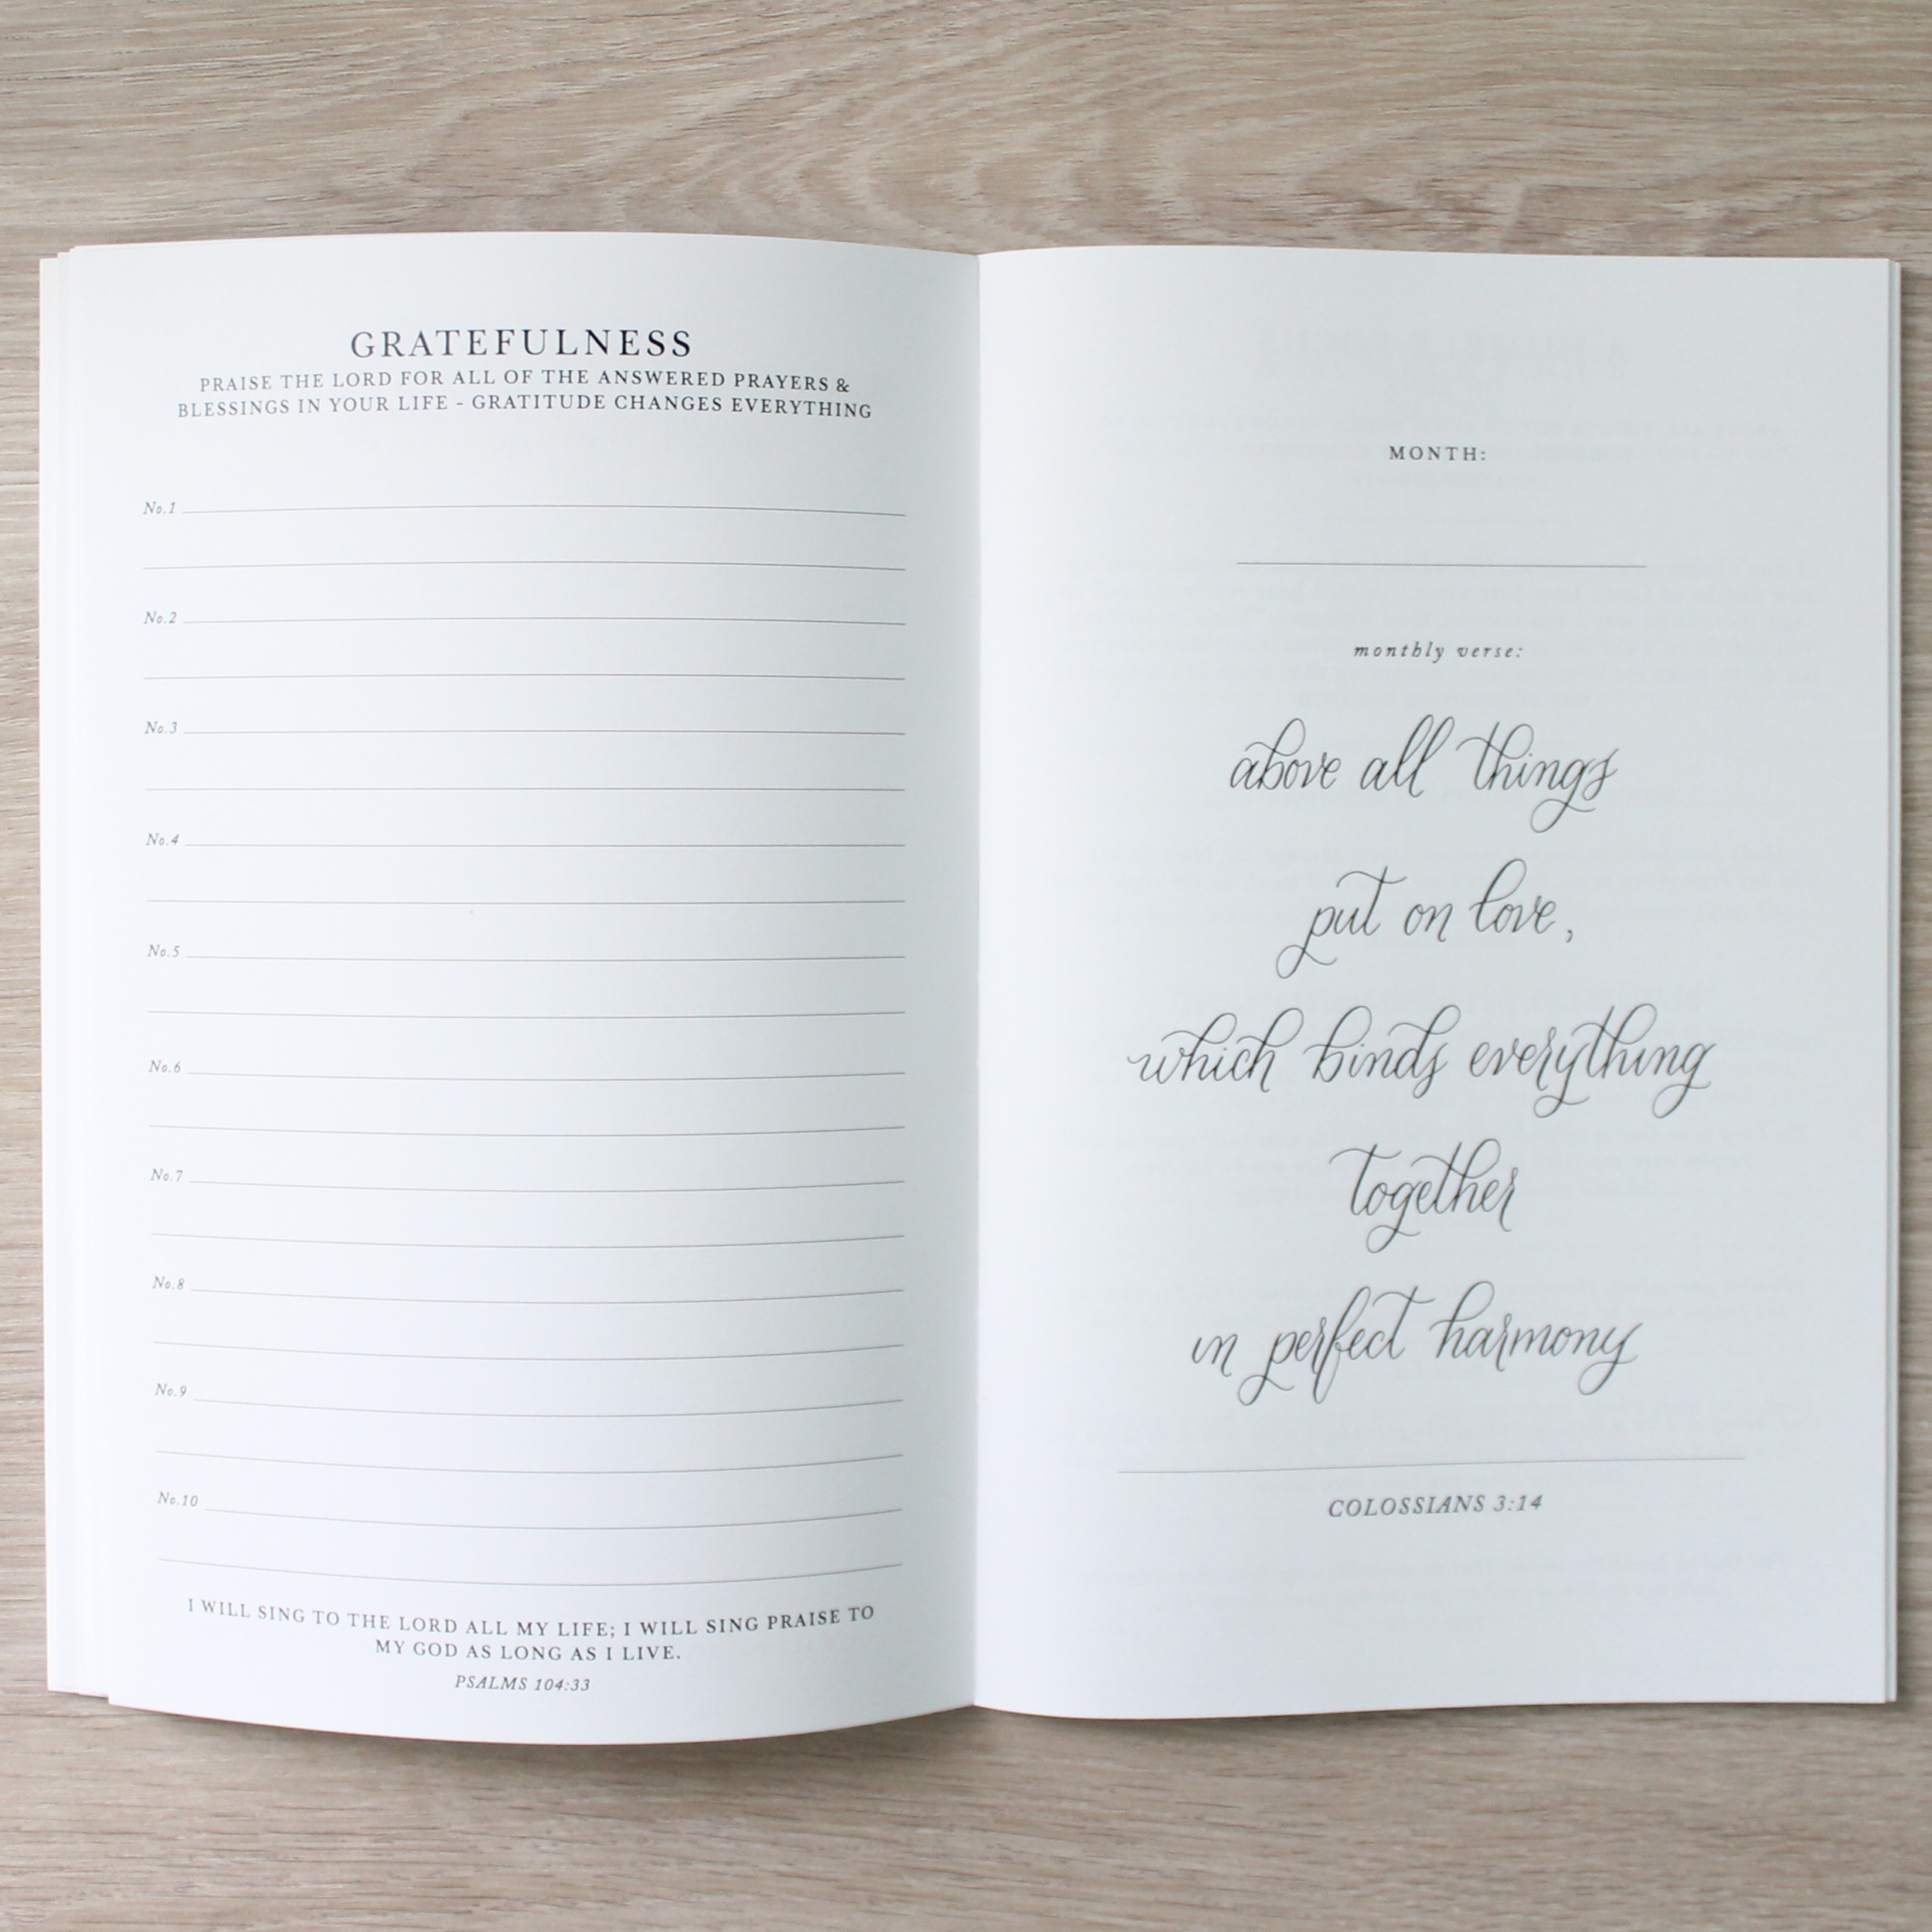 GRATEFULNESS
PRAISE THE LORD FOR ALL OF THE ANSWERED PRAYERS &
BLESSINGS IN YOUR LIFE - GRATITUDE CHANGES EVERYTHING
No.1
No.2
No.3
No.4
No.5
No.6
No.7
No.8
No.9
No.10
I WILL SING TO THE LORD ALL MY LIFE; I WILL SING PRAISE TO
MY GOD AS LONG AS I LIVE.
PSALMS 104:33
MONTH:
monthly verse:
above all things
put on love,
which binds everything
together
in perfect harmony
COLOSSIANS 3:14